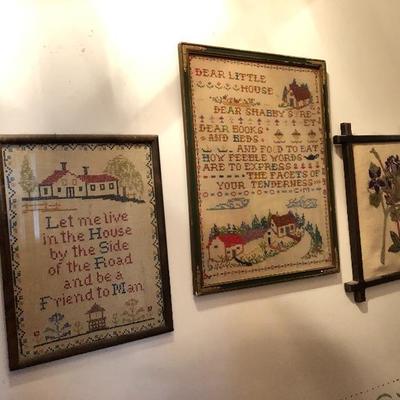 Let me live
in the House
by the Side
of the Road
and be a
Friend to Man
DEAR LITTLE
HOUSE
DEAR SHABBY STRE-
ET
DEAR BOOKS
AND BEDS
AND FOOD TO EAT
HOW FEEBLE WORDS
ARE TO EXPRESS
THE FACETS OF
YOUR TENDERNESS